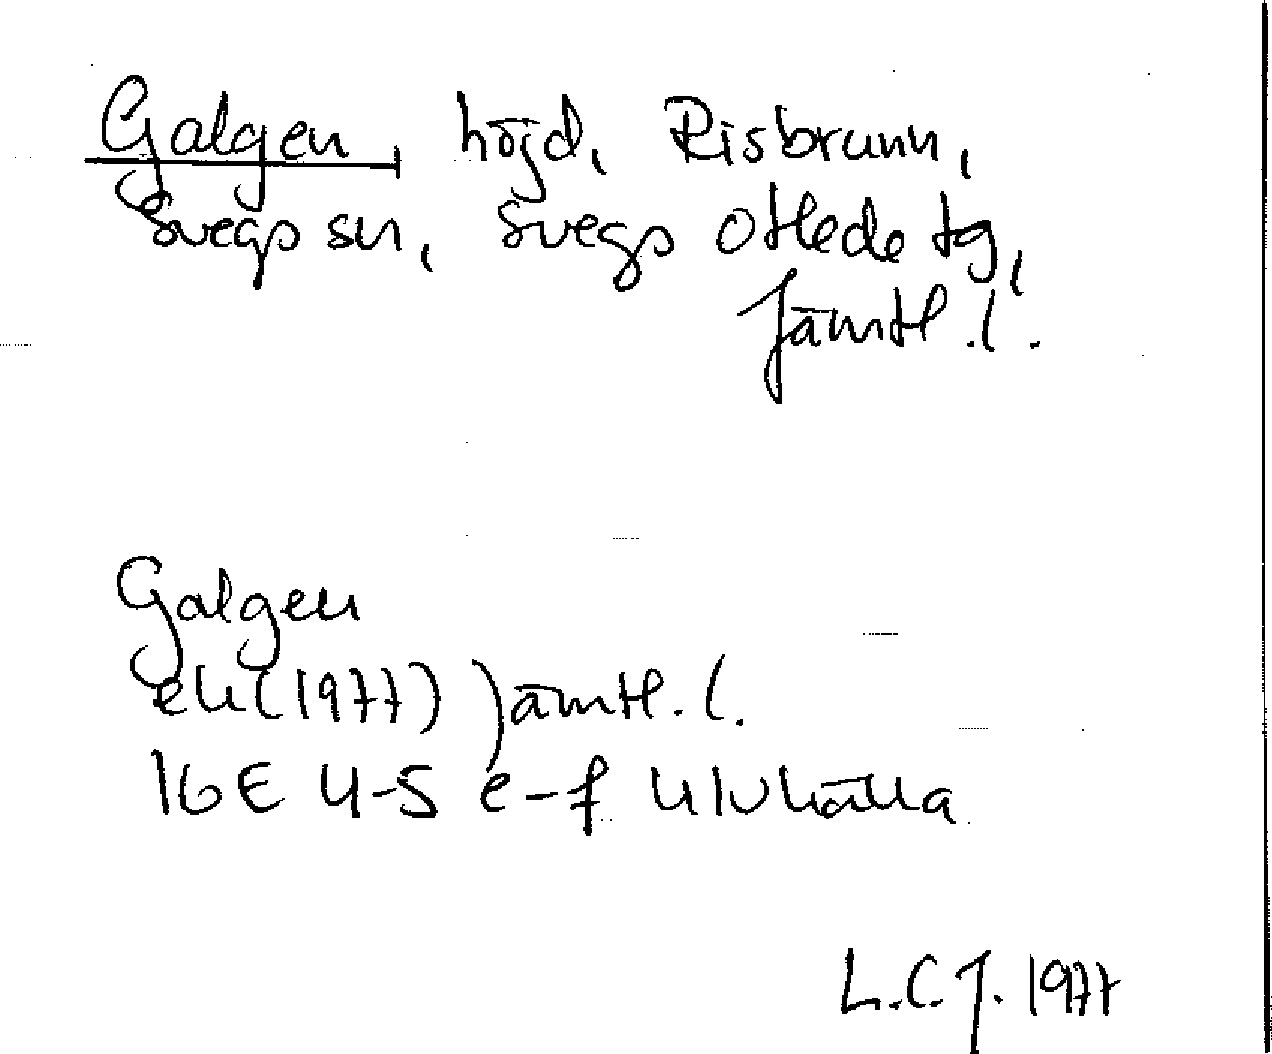 Galgen, höjd, Risbrunn,
Svegs sn, Svegs otlede tg,
Jämtl. l.
Galgen
ek (1977) Jämtl. l.
16E 4-5 e-f Ulvkälla
L.C.J. 1977